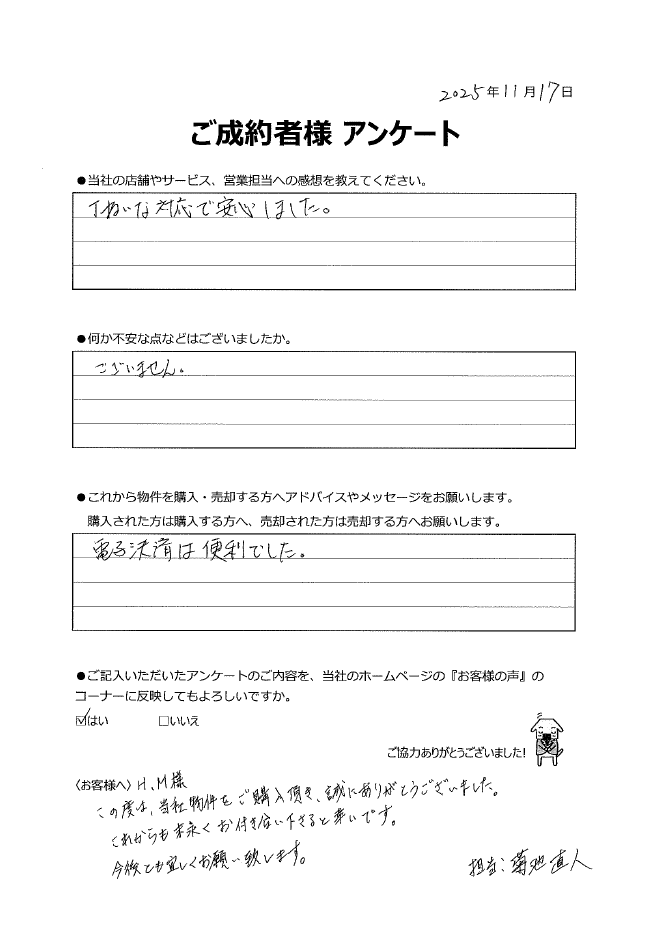 2025年11月17日
ご成約者様 アンケート
●当社の店舗やサービス、営業担当への感想を教えてください。
丁ねいな対応で安心しました。
●何か不安な点などはございましたか。
ございません。
●これから物件を購入・売却する方へアドバイスやメッセージをお願いします。
購入された方は購入する方へ、売却された方は売却する方へお願いします。
電子決済は便利でした。
●ご記入いただいたアンケートのご内容を、当社のホームページの『お客様の声』の
コーナーに反映してもよろしいですか。
☑はい □いいえ
ご協力ありがとうございました!
〈お客様へ〉H.M様
この度は、当社物件をご購入頂き、誠にありがとうございました。
これからも末永くお付き合い下さると幸いです。
今後とも宜しくお願い致します。
担当:菊池直人